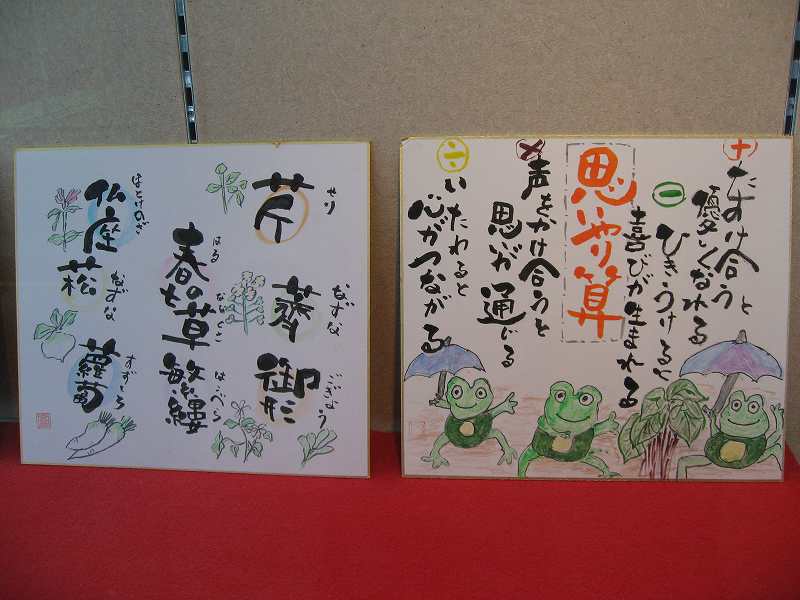 せり
芹
なずな
薺
ごぎょう
御形
はる
なな
春の七草
はこべら
繁縷
ほとけのざ
仏座
なずな
菘
すずしろ
蘿蔔
思いやり算
＋
たすけ合うと
優しくなれる
－
ひきうけると
喜びが生まれる
×
声をかけ合うと
思いが通じる
÷
いたわると
心がつながる